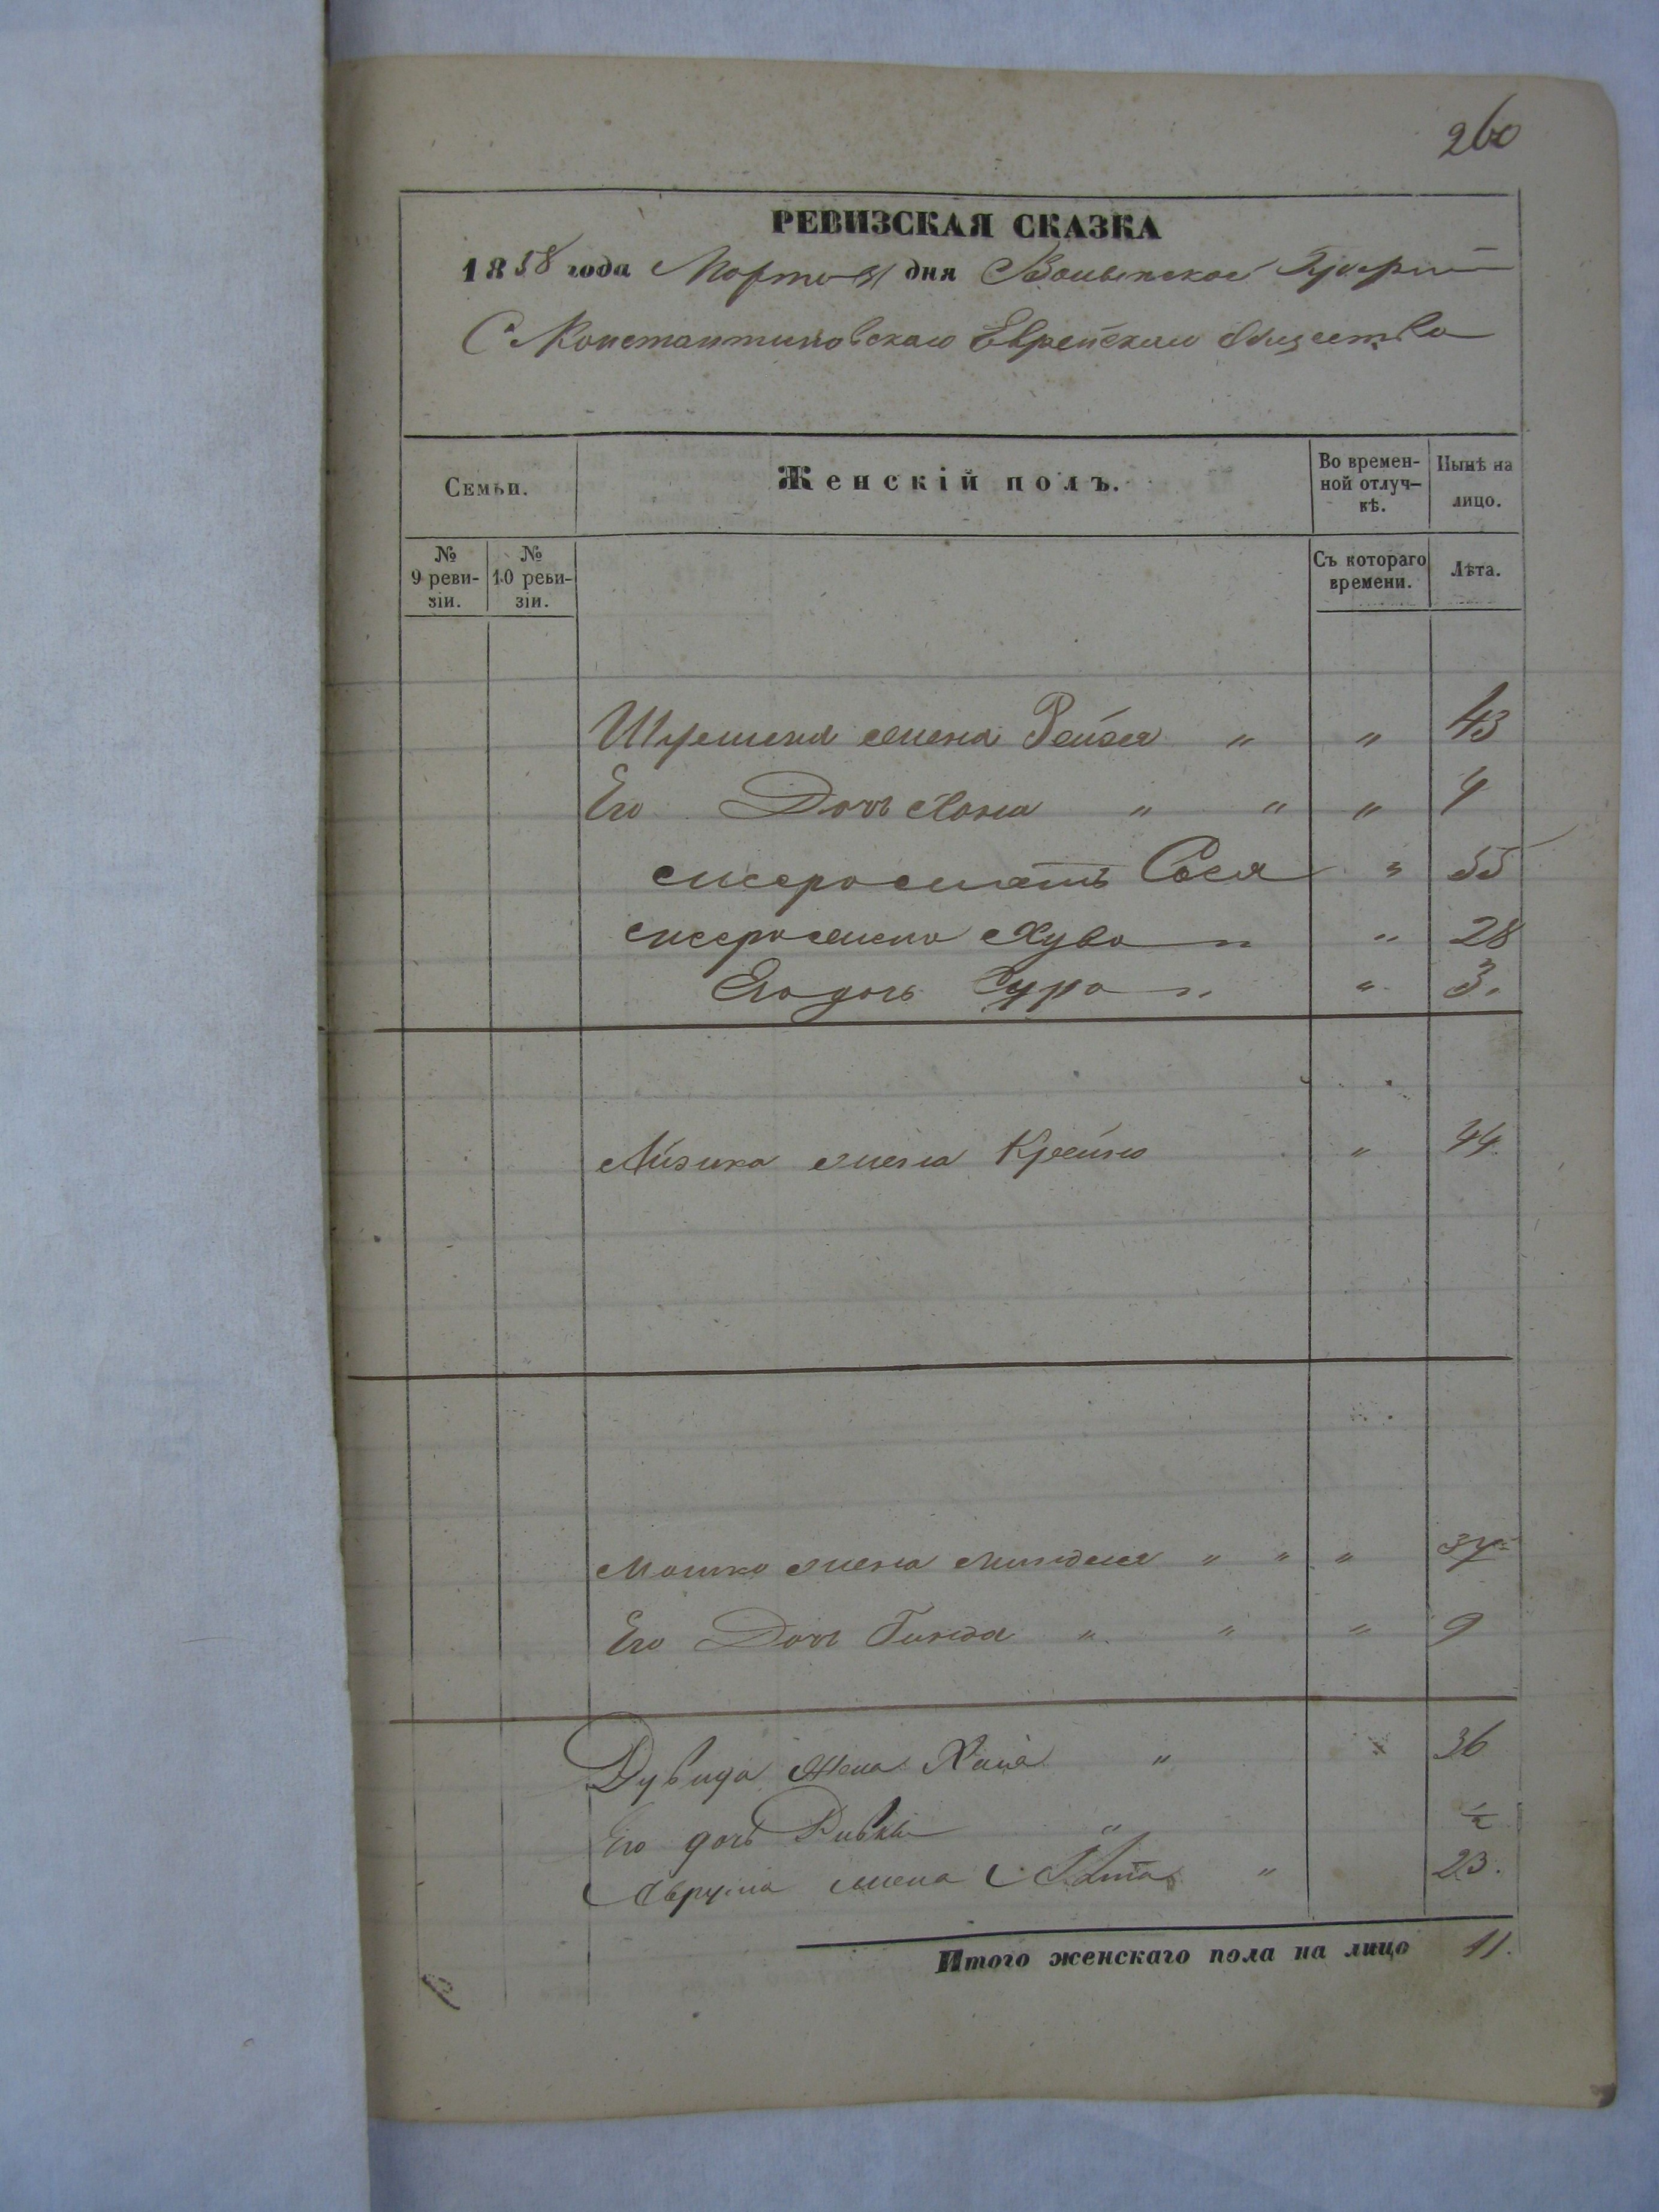 260
РЕВИЗСКАЯ СКАЗКА
1858 года Марта 31 дня Волынской Губерніи
С Константиновскаго Еврейскаго общества
Семьи.
Женскій полъ.
Во времен-
ной отлуч-
кѣ.
Нынѣ на
лицо.
№
9 реви-
зіи.
№
10 реви-
зіи.
Съ котораго
времени.
Лѣта.
жена Рейзя " " 43
Его Дочь Хана " " "
мать Сося " 55
жена Хува " " 28
Его дочь Сура " " 3.
Айзика жена Крейна " 44
Мошка жена Миндля " " "
Его Дочь Гинда " " " 9
Дувида Жена Хая " 36
Его дочь Ривка " 1/2
Аврума жена " 23.
Итого женскаго пола на лицо 11.